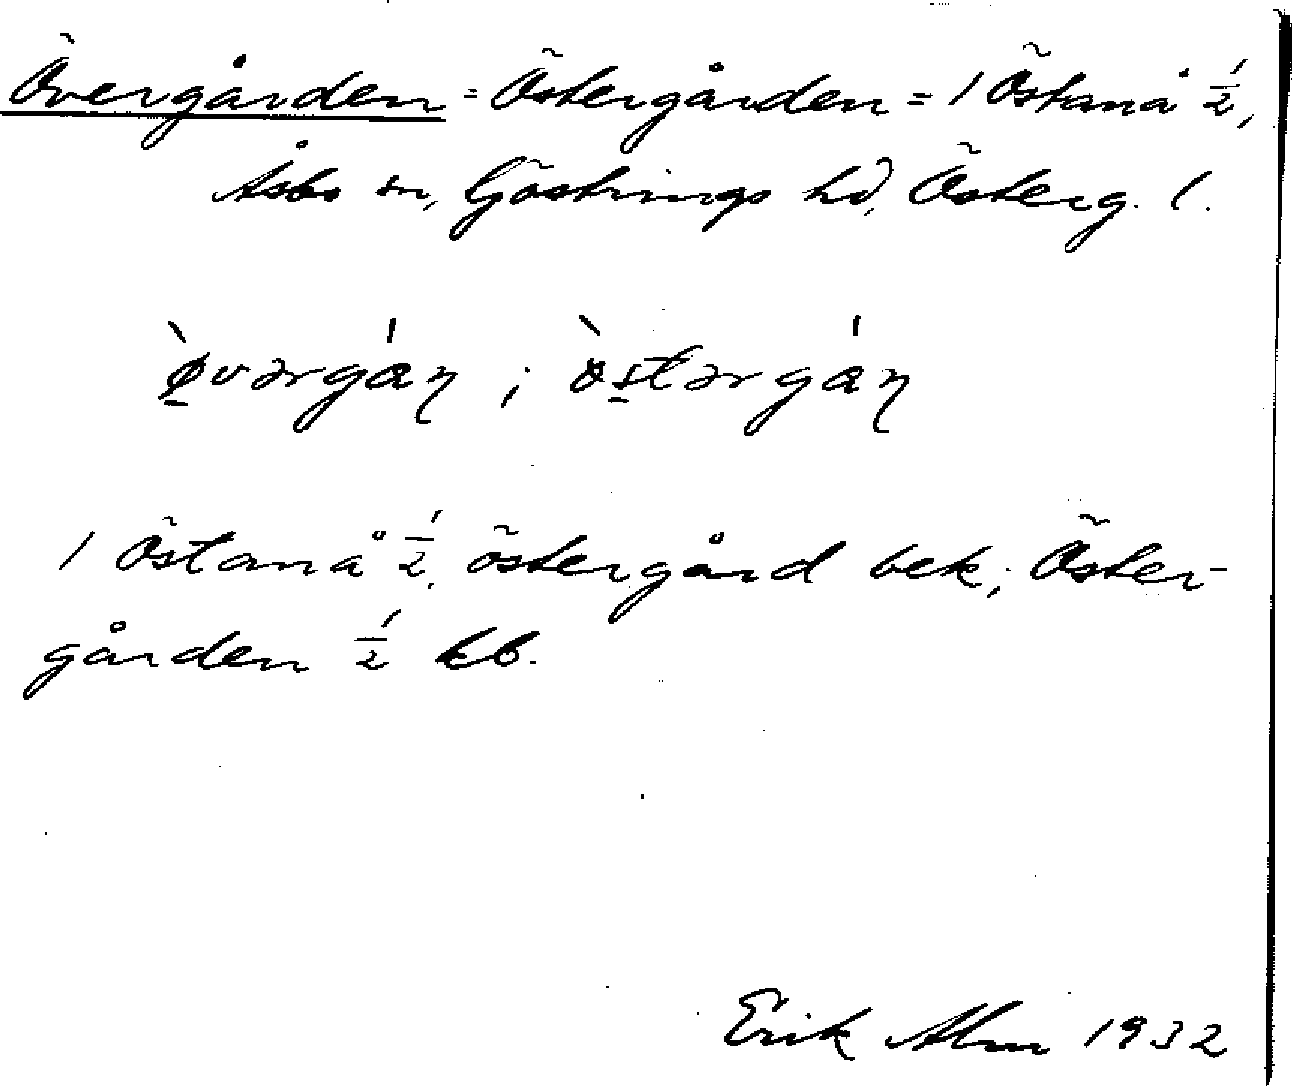 Övergården = Östergården = 1 Östanå ½,
Åsbo sn, Göstrings hd, Österg. l.
ø̠̀vərgán ; ò̠stərgán
1 Östanå ½, östergård bek; Öster-
gården ½ kb.
Erik Alm 1932